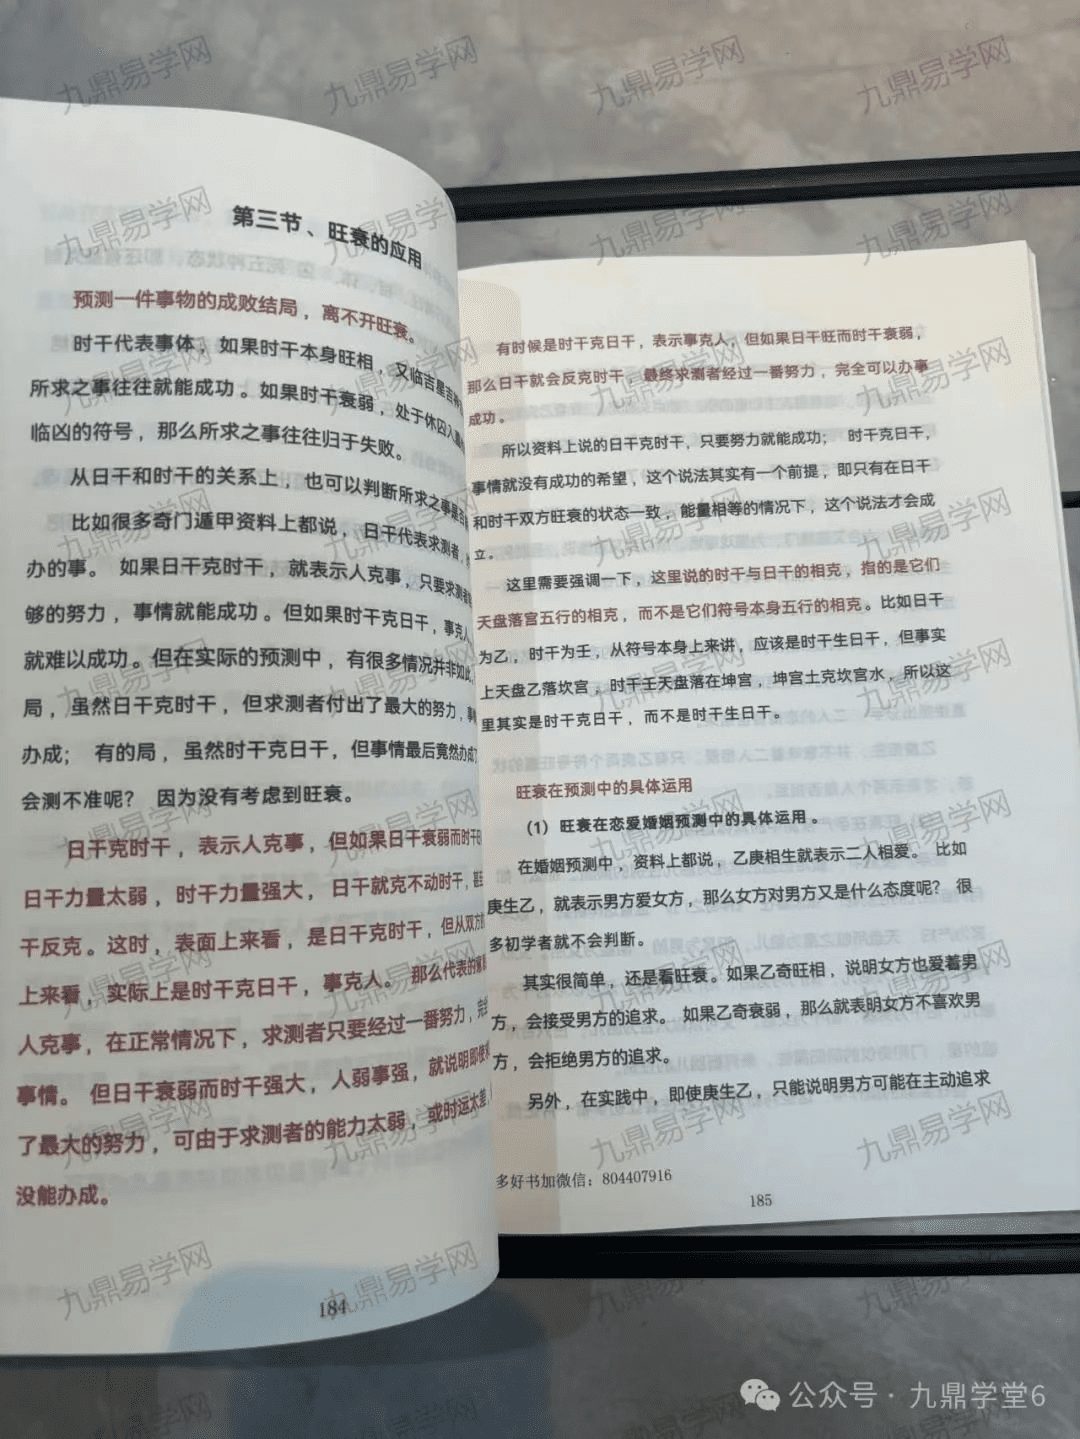 第三节、旺衰的应用
预测一件事物的成败结局，离不开旺衰。
时干代表事体，如果时干本身旺相，又临吉星吉
所求之事往往就能成功。如果时干衰弱，处于休囚
临凶的符号，那么所求之事往往归于失败。
从日干和时干的关系上，也可以判断所求之事
比如很多奇门遁甲资料上都说，日干代表求测者，
办的事。 如果日干克时干，就表示人克事，只要求测者
够的努力，事情就能成功。但如果时干克日干，事克人，
就难以成功。但在实际的预测中，有很多情况并非如此，
局，虽然日干克时干，但求测者付出了最大的努力，
办成； 有的局，虽然时干克日干，但事情最后竟然办成了
会测不准呢？ 因为没有考虑到旺衰。
日干克时干，表示人克事，但如果日干衰弱而时干
日干力量太弱，时干力量强大，日干就克不动时干，甚至
干反克。这时，表面上来看，是日干克时干，但从双方的
上来看，实际上是时干克日干，事克人。 那么代表的
人克事，在正常情况下，求测者只要经过一番努力，完全
事情。 但日干衰弱而时干强大，人弱事强，就说明即使
了最大的努力，可由于求测者的能力太弱，或时运太差，
没能办成。
184
有时候是时干克日干，表示事克人，但如果日干旺而时干衰弱，
那么日干就会反克时干，最终求测者经过一番努力，完全可以办事
成功。
所以资料上说的日干克时干，只要努力就能成功； 时干克日干，
事情就没有成功的希望，这个说法其实有一个前提，即只有在日干
和时干双方旺衰的状态一致，能量相等的情况下，这个说法才会成
立。
这里需要强调一下，这里说的时干与日干的相克，指的是它们
天盘落宫五行的相克，而不是它们符号本身五行的相克。比如日干
为乙，时干为壬，从符号本身上来讲，应该是时干生日干，但事实
上天盘乙落坎宫，时干壬天盘落在坤宫，坤宫土克坎宫水，所以这
里其实是时干克日干，而不是时干生日干。
旺衰在预测中的具体运用
（1）旺衰在恋爱婚姻预测中的具体运用。
在婚姻预测中，资料上都说，乙庚相生就表示二人相爱。 比如
庚生乙，就表示男方爱女方，那么女方对男方又是什么态度呢？ 很
多初学者就不会判断。
其实很简单，还是看旺衰。如果乙奇旺相，说明女方也爱着男
方，会接受男方的追求。 如果乙奇衰弱，那么就表明女方不喜欢男
方，会拒绝男方的追求。
另外，在实践中，即使庚生乙，只能说明男方可能在主动追求
多好书加微信：804407916
185
九鼎易学网
公众号 · 九鼎学堂6